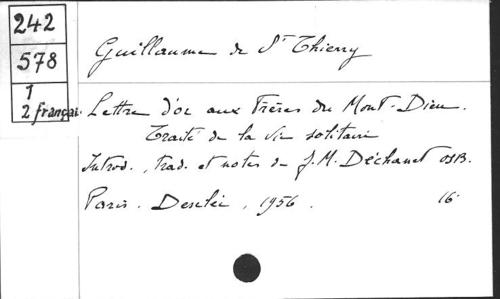 242
578
1
2 françai.
Guillaume de St Thierry
Lettre d'or aux Frères du Mont-Dieu.
Traité de la vie solitaire
Introd., trad. et notes de J.M. Déchanet OSB.
Paris. Desclée, 1956. 16